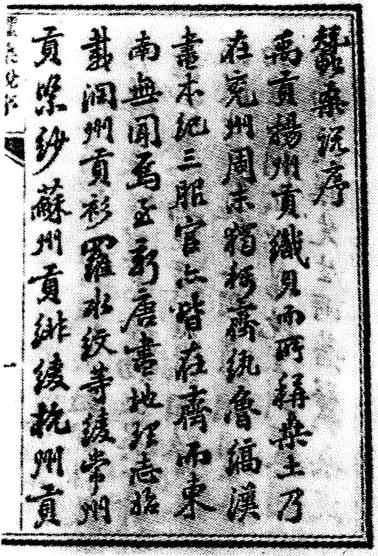 蠶桑説序
禹貢揚州貢織貝而所稱桑土乃
在兗州周末獨稱齊紈魯縞漢
書本紀三服官亦皆在齊而東
南無聞焉至新唐書地理志始
載潤州貢衫羅水紋等綾常州
貢紫紗蘇州貢緋綾杭州貢
一